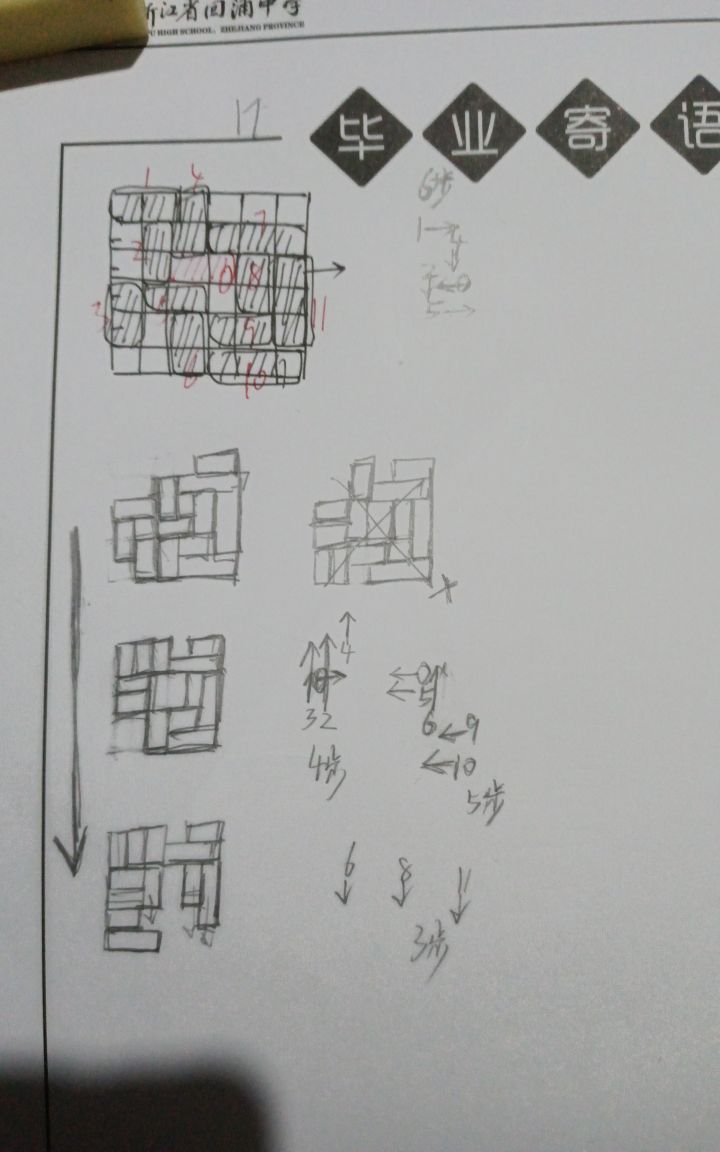 浙江省回浦中学
U HIGH SCHOOL, ZHEJIANG PROVINCE
17
毕业寄语
1 4
7
2
0 8
3
5
9
11
6 10
6步
1→4
↓
7←0
5→
X
4
32
4步
5
6←9
←10
5步
6 8 11
3步